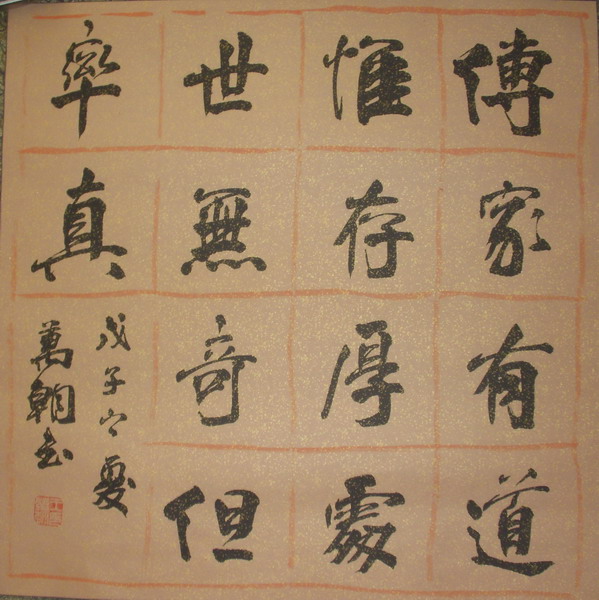 傳家有道
惟存厚處
世無奇但
率真
戊子之夏
萬朝书